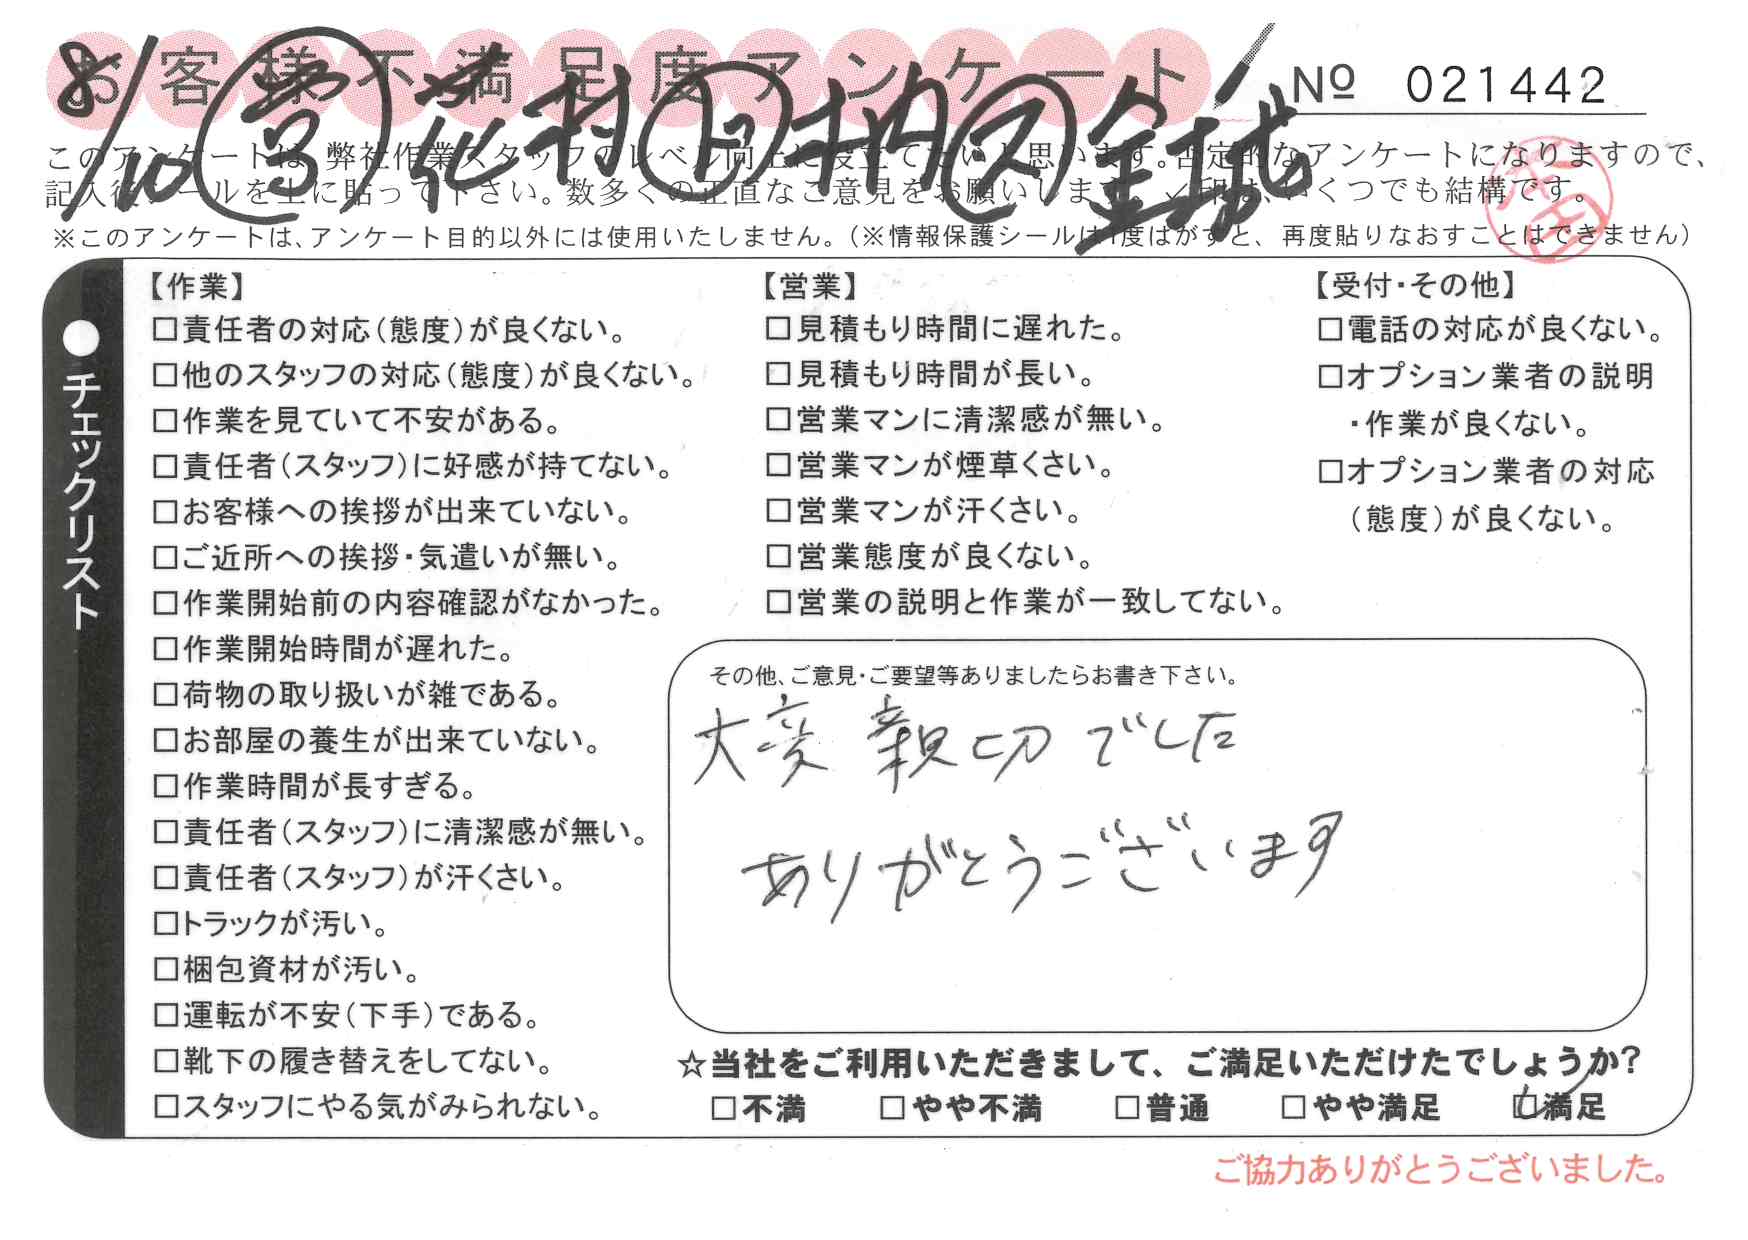 お客様不満足度アンケート Nº 021442
8/10 営 花村 ド 木村 ス 金城
このアンケートは、弊社作業スタッフのレベル向上に役立てたいと思います。否定的なアンケートになりますので、
記入後シールを上に貼って下さい。数多くの正直なご意見をお願いします。✓印は、いくつでも結構です。
※このアンケートは、アンケート目的以外には使用いたしません。（※情報保護シールは1度はがすと、再度貼りなおすことはできません）
●チェックリスト
【作業】
□責任者の対応（態度）が良くない。
□他のスタッフの対応（態度）が良くない。
□作業を見ていて不安がある。
□責任者（スタッフ）に好感が持てない。
□お客様への挨拶が出来ていない。
□ご近所への挨拶・気遣いが無い。
□作業開始前の内容確認がなかった。
□作業開始時間が遅れた。
□荷物の取り扱いが雑である。
□お部屋の養生が出来ていない。
□作業時間が長すぎる。
□責任者（スタッフ）に清潔感が無い。
□責任者（スタッフ）が汗くさい。
□トラックが汚い。
□梱包資材が汚い。
□運転が不安（下手）である。
□靴下の履き替えをしてない。
□スタッフにやる気がみられない。
【営業】
□見積もり時間に遅れた。
□見積もり時間が長い。
□営業マンに清潔感が無い。
□営業マンが煙草くさい。
□営業マンが汗くさい。
□営業態度が良くない。
□営業の説明と作業が一致してない。
【受付・その他】
□電話の対応が良くない。
□オプション業者の説明
・作業が良くない。
□オプション業者の対応
（態度）が良くない。
その他、ご意見・ご要望等ありましたらお書き下さい。
大変 親切 でした
ありがとうございます
☆当社をご利用いただきまして、ご満足いただけたでしょうか？
□不満 □やや不満 □普通 □やや満足 ☑満足
ご協力ありがとうございました。